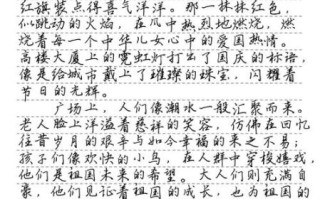 红旗装点得喜气洋洋。那一抹抹红色,
似跳动的火焰,在风中热烈地燃烧,燃
烧着每一个中华儿女心中的爱国热情。
高楼大厦上的霓虹灯打出了国庆的标语,
像是给城市戴上了璀璨的珠宝,闪耀着
节日的光辉。
广场上,人们像潮水一般汇聚而来。
老人脸上洋溢着慈祥的笑容,仿佛在回忆
往昔岁月的艰辛与如今幸福的来之不易;
孩子们像欢快的小鸟,在人群中穿梭嬉戏,
他们是祖国未来的希望。大人们则充满自
豪,他们见证着祖国的成长,也为祖国的